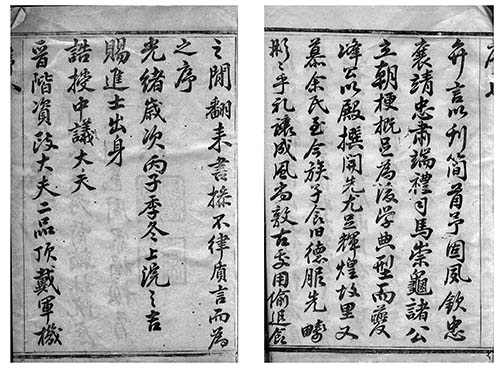 弁言以刊簡首予固夙欽忠
襄靖忠肅端禮司馬崇龜諸公
立朝梗概足為後學典型而夔
峰公以殿撰開先尤足輝煌故里又
慕余氏至今族子食旧德服先疇
彬彬乎礼讓成風尚敦古處用偷退食
之閒翻来書操不律質言而為
之序
光緒歲次丙子季冬上浣之吉
賜進士出身
誥授中議大夫
晉階資政大夫二品頂戴軍機